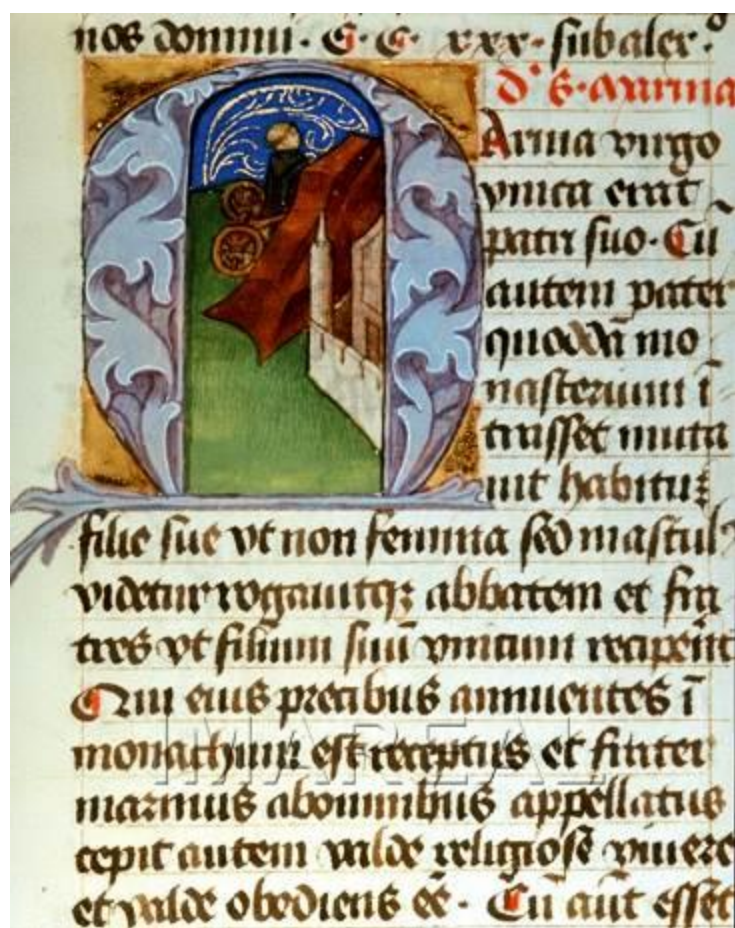 nos domini · C C · xxx · sub alex
d' S · Marina
Arina virgo
vnica erat
patri suo · Cū
autem pater
quoddā mo
nasterium ī
trasset muta
uit habituꝫ
filie sue vt non femina sed mascul'
videtur rogauitqꝫ abbatem et fra
tres vt filium suū vnicum recipe͞nt
Qui eius precibus annuentes ī
monachum est receptus et frater
marinus abominibus appellatus
cepit autem valde religiose viuere
et valde obediens eē · Cū aūt esset
IMAREAL